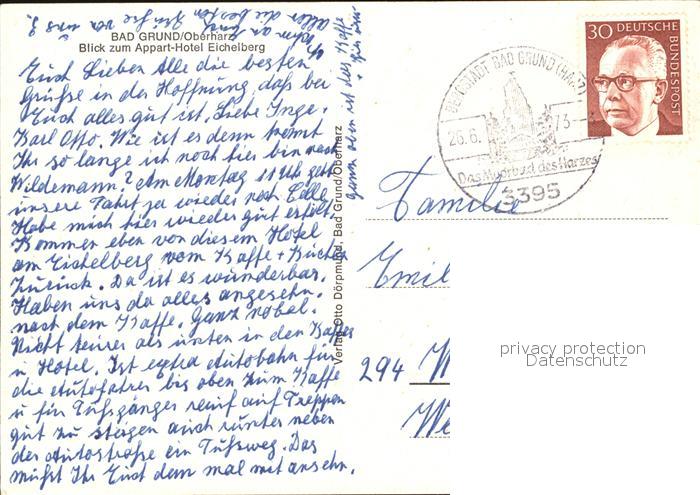 BAD GRUND/Oberharz
Blick zum Appart-Hotel Eichelberg
Euch Lieben Alle die besten
Grüße in der Hoffnung, daß bei
Euch alles gut ist. Liebe Inge,
Karl Otto. Wie ist es denn kommt
Ihr so lange ich noch hier bin nach
Wildemann? Am Montag 11 Uhr geht
unsere Fahrt ja wieder nach Celle
Habe mich hier wieder gut erholt.
Kommen eben von diesem Hotel
am Eichelberg vom Kaffe + Kuchen
zurück. Da ist es wunderbar.
Haben uns da alles angesehn.
nach dem Kaffe. Ganz nobel.
Nicht teurer als unten in den Kaffes
u Hotel. Ist extra Autobahn für
die Autofahrer bis oben zum Kaffe
u für Fußgänger rauf auf Treppen
gut zu steigen auch runter neben
der Autostraße ein Fußweg. Das
müßt Ihr Euch dem mal mit ansehn.
Verlag Otto Dörpmund, Bad Grund/Oberharz
30 DEUTSCHE
BUNDESPOST
BERGSTADT BAD GRUND (HARZ)
26.6. 73
Das Moorbad des Harzes
3395
Familie
Emil
294 W
We
privacy protection
Datenschutz